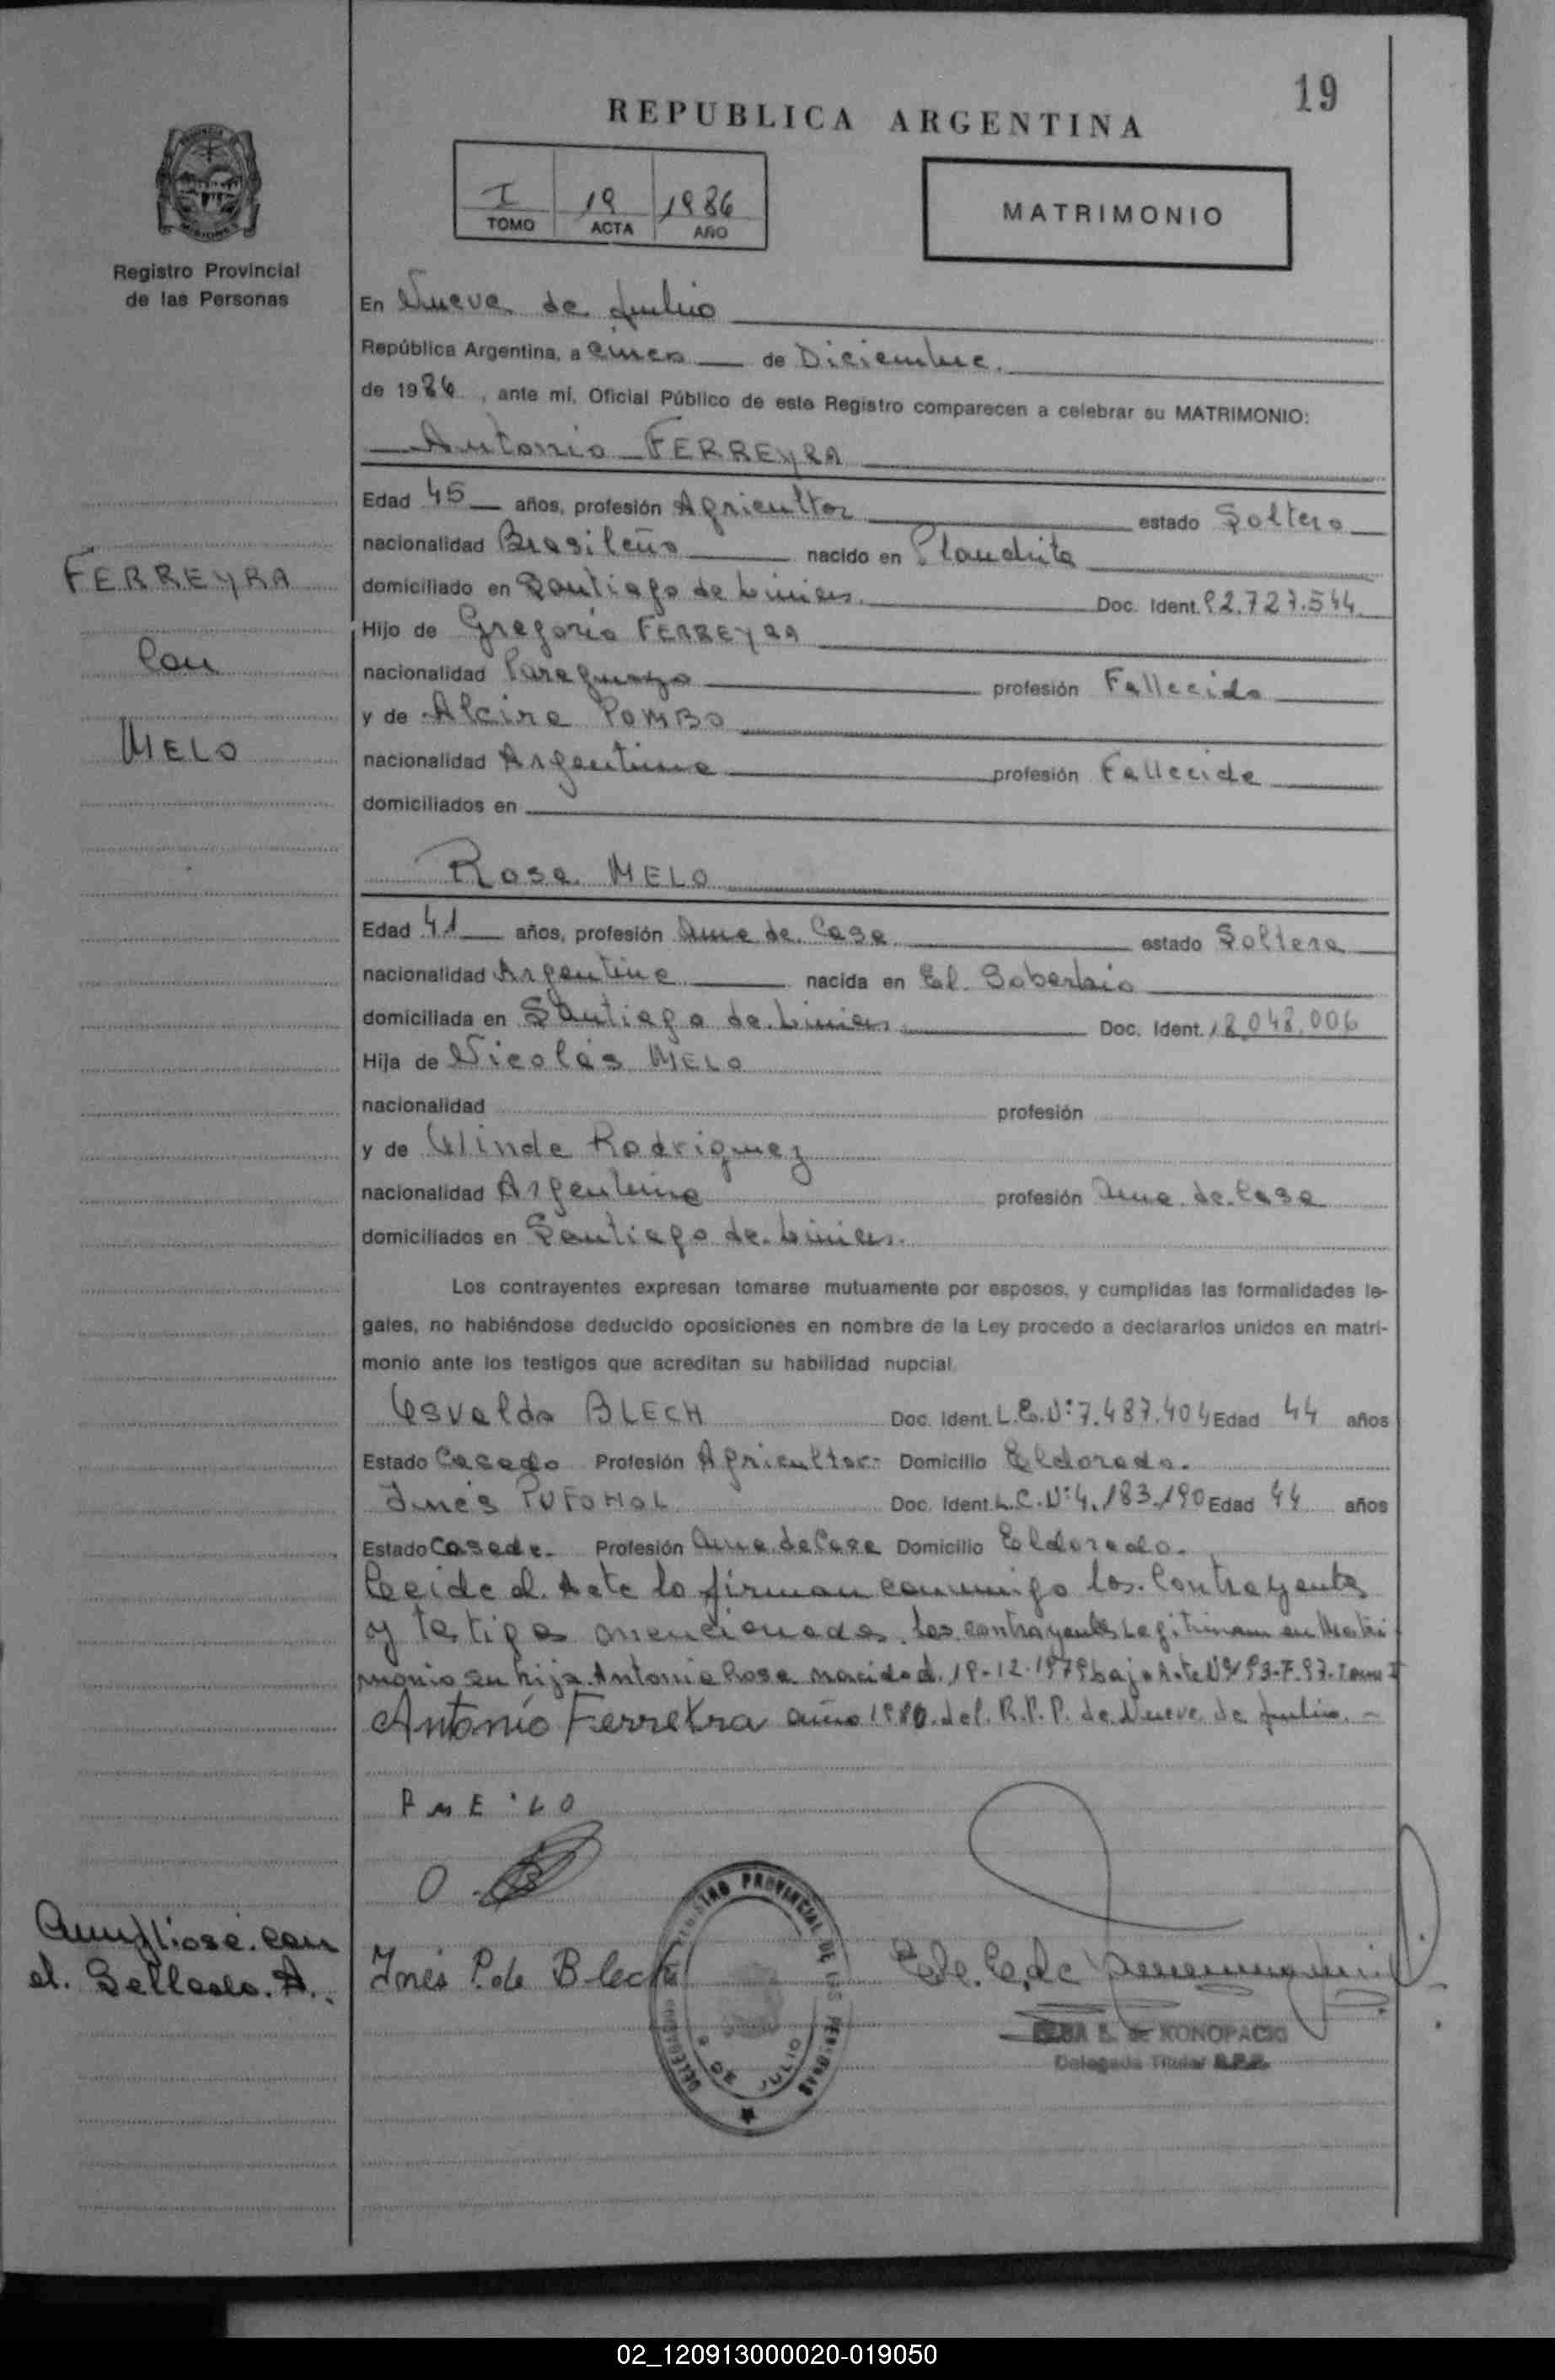 19
REPUBLICA ARGENTINA
I 19 1986
TOMO ACTA AÑO
MATRIMONIO
Registro Provincial
de las Personas
En Nueve de Julio
República Argentina, a cinco de Diciembre.
de 1986, ante mí, Oficial Público de este Registro comparecen a celebrar su MATRIMONIO:
Antonio FERREYRA
Edad 45 años, profesión Agricultor estado Soltero
nacionalidad Brasileño nacido en
FERREYRA
domiciliado en Santiago de Liniers. Doc. Ident. 92.727.544
Hijo de Gregorio FERREYRA
Con
nacionalidad Paraguayo profesión Fallecido
y de Alcira POMBO
MELO
nacionalidad Argentina profesión Fallecida
domiciliados en
Rosa MELO
Edad 41 años, profesión Ama de Casa estado Soltera
nacionalidad Argentina nacida en El Soberbio
domiciliada en Santiago de Liniers. Doc. Ident. 18.048.006
Hija de Nicolás MELO
nacionalidad profesión
y de Olinda Rodriguez
nacionalidad Argentina profesión Ama de Casa
domiciliados en Santiago de Liniers.
Los contrayentes expresan tomarse mutuamente por esposos, y cumplidas las formalidades le-
gales, no habiéndose deducido oposiciones en nombre de la Ley procedo a declararlos unidos en matri-
monio ante los testigos que acreditan su habilidad nupcial.
Osvaldo BLECH Doc. Ident. L.E.Nº7.487.404 Edad 44 años
Estado Casado Profesión Agricultor Domicilio Eldorado.
Inés Doc. Ident. L.C.Nº4.183.190 Edad 44 años
Estado Casada Profesión Ama de Casa Domicilio Eldorado.
Leida el Acta lo firman conmigo los Contrayentes
y testigos mencionados. Los contrayentes Legitiman en Matri
monio su hija Antonia Rosa nacida el 19-12-1979 bajo Acta Nº 93-F.97-Tomo I
Antonio Ferreyra año 1980 del R.P.P. de Nueve de Julio.-
O. B
Inés P. de Blech
el Sellado. A.
REGISTRO PROVINCIAL DE LAS PERSONAS
9 DE JULIO
L. de KONOPACKI
Delegada Titular R.P.P.
02_120913000020-019050